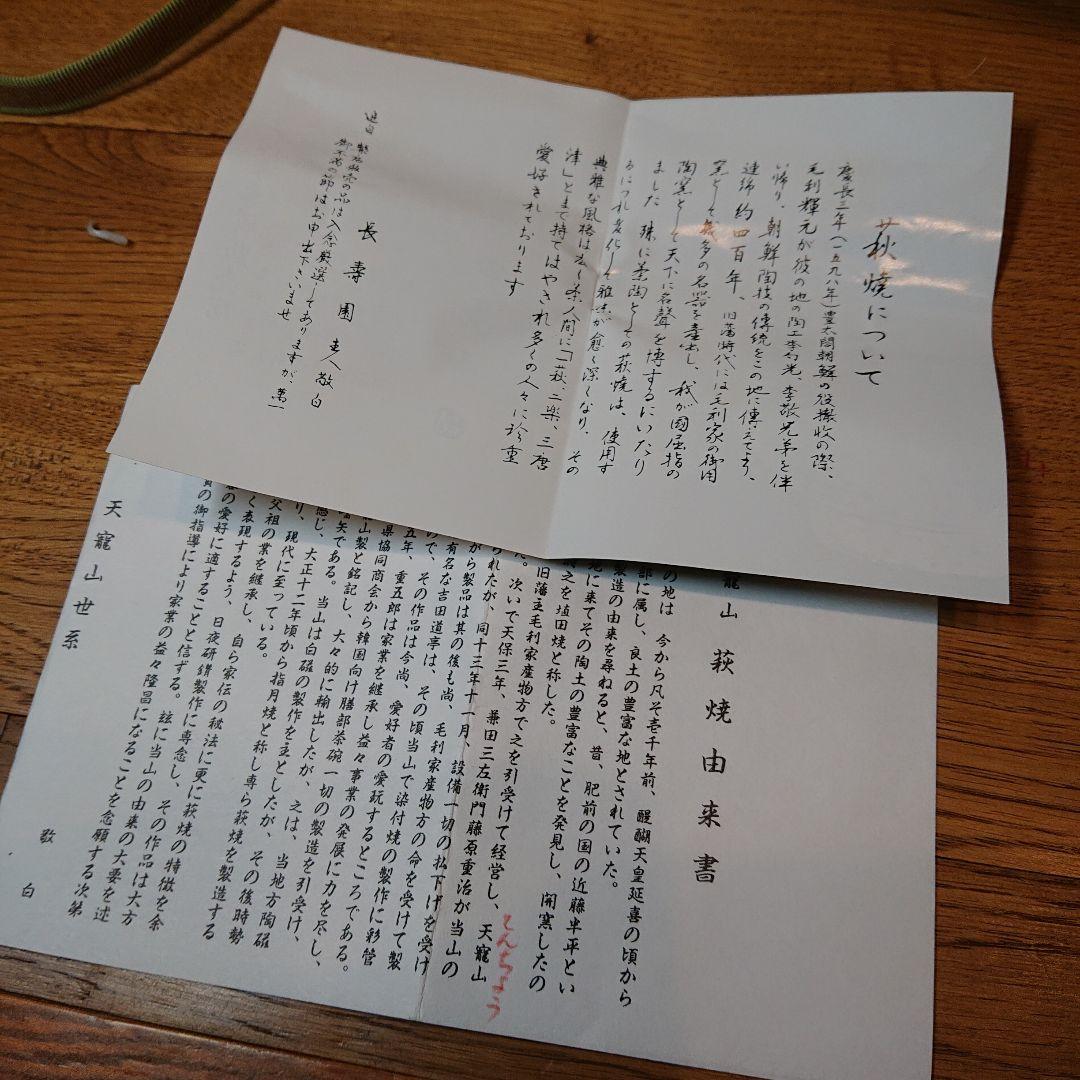 萩焼について
慶長三年(一五九八年)豊太閤朝鮮の役撤收の際、
毛利輝元が彼の地の陶工李勺光、李敬兄弟を伴
い帰り、朝鮮陶技の傳統をこの地に傳えてより、
連綿約四百年、旧藩時代には毛利家の御用
窯として幾多の名器を産出し、我が國屈指の
陶窯として天下に名聲を博するにいたり
ました 殊に茶陶としての萩焼は、使用す
るにつれ変化して雅味が愈く深くなり、その
典雅な風格は広く茶人間に「一萩、二楽、三唐
津」とまで持てはやされ多くの人々に珍重
愛好されております
長壽園主人敬白
追白 製品販売の品は入念厳選してありますが、萬一
御不満の節はお申出下さいませ
寵山 萩焼由来書
の地は 今から凡そ壱千年前、醍醐天皇延喜の頃から
部に属し、良土の豊富な地とされていた。
製造の由来を尋ねると、昔、肥前の国の近藤半平とい
地に来てその陶土の豊富なことを発見し、開窯したの
之を埴田焼と称した。
旧藩主毛利家産物方で之を引受けて経営し、天寵山
てんちょう
次いで天保三年、兼田三左衛門藤原重治が当山の
られたが、同十三年十一月、設備一切の払下げを受け
がら製品は其の後も尚、毛利家産物方の命を受けて製
有名な吉田道亭は、その頃当山で染付焼の製作に彩管
ので、その作品は今尚、愛好者の愛玩するところである。
五年、重五郎は家業を継承し益々事業の発展に力を尽し、
県協同商会から韓国向け膳部茶碗一切の製造を引受け、
山製と銘記し、大々的に輸出したが、之は、当地方陶磁
嚆矢である。当山は白磁の製作を主としたが、その後時勢
感じ、大正十二年頃から指月焼と称し専ら萩焼を製造する
り、現代に至っている。
父祖の業を継承し、自ら家伝の秘法に更に萩焼の特徴を余
く表現するよう、日夜研鑽製作に専念し、その作品は大方
の愛好に適することと信ずる。玆に当山の由来の大要を述
の御指導により家業の益々隆昌になることを念願する次第
敬白
天寵山世系